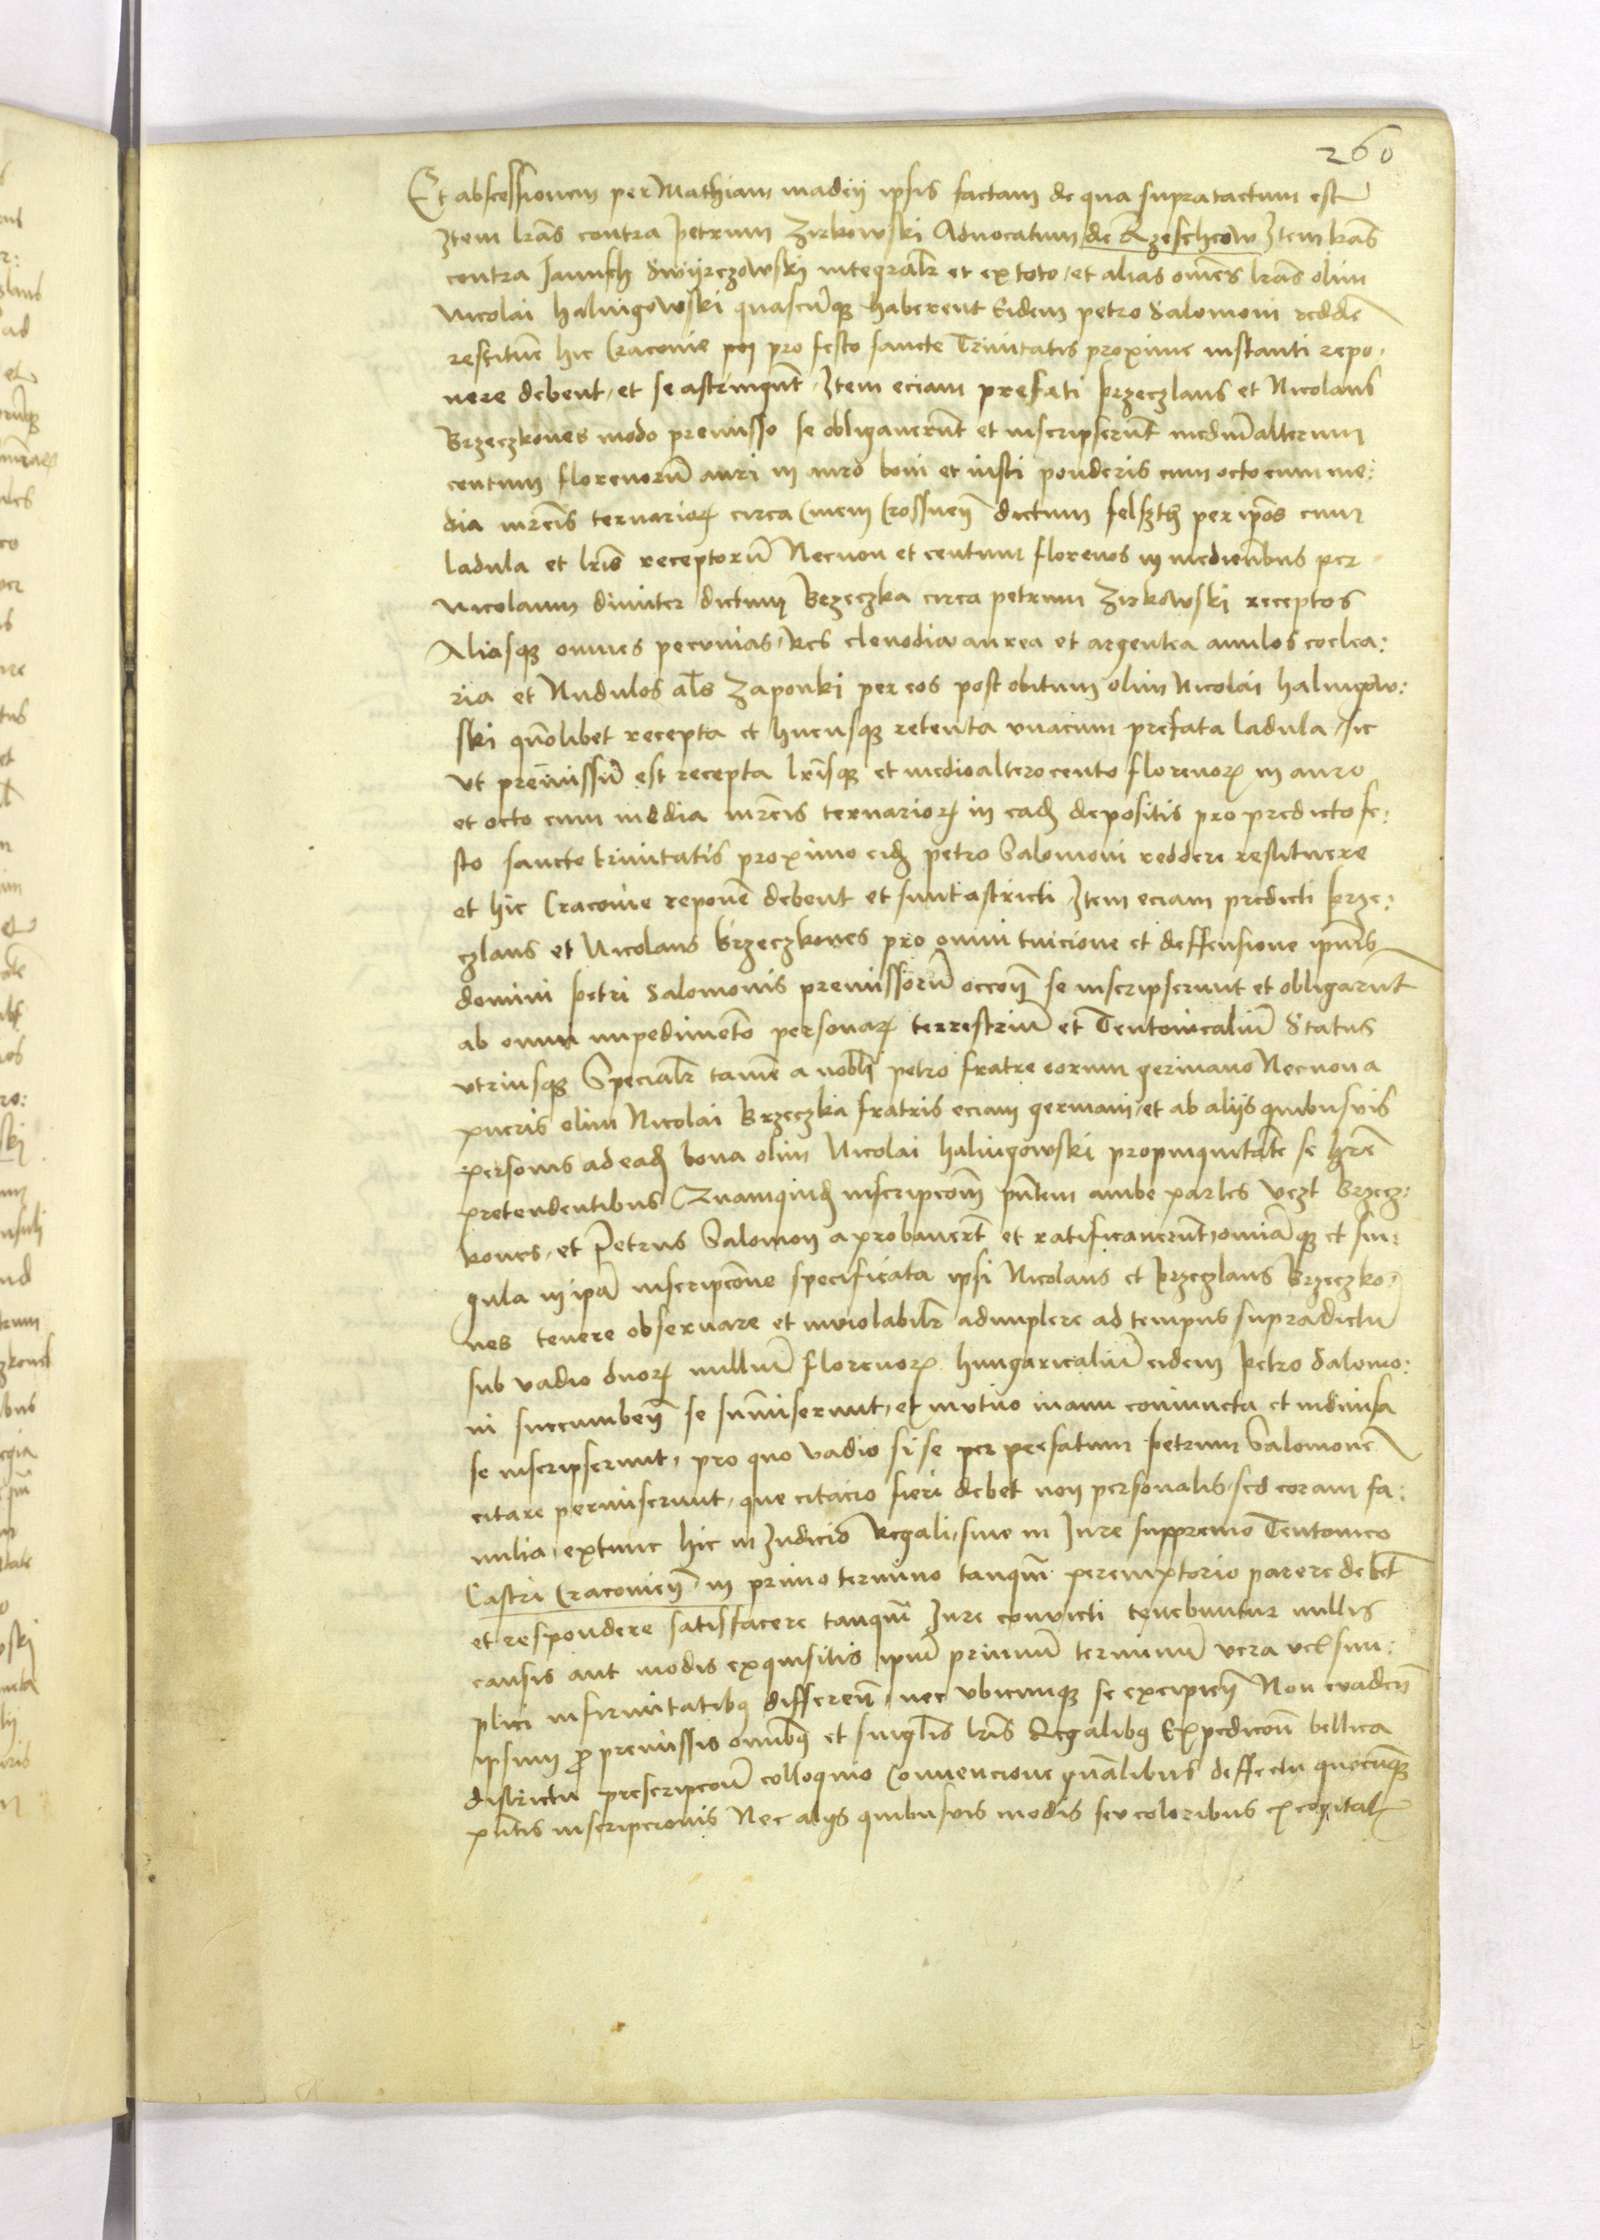 260
Et abscessionem per Mathiam madeij ipsis factam de qua supra tactum est
Item lras contra Petrum Zirkowski Advocatum de Rzeschcow Item lras
contra Janusch Swijrczowski integralr et ex toto, et alias omēs lras olim
Nicolai halvigowski quascūq haberent Eidem petro Salomoni redde
restitue hic Cracovie pro festo sancte Trinitatis proxime instanti repo:
nere debent, et se astringūt, Item eciam prefati Przeczlaus et Nicolaus
Brzeczkones modo premisso se obligaverūt et inscripserūt mediūalterum
centum florenorū auri in auro boni et iusti ponderis cum octo cum me:
dia mrcis ternarior circa Crossnen dictum felszth per ipos cum
ladula et lris receptorū Necnon et centum florenos in medietatibus per
Nicolaum divinter dictum Brzeczka circa petrum Zirkowski receptos
Aliasq omnes pecunias, Res clenodia aurea et argentea anulos coclea:
ria et Nudulos als Zaponki per eos post obitum olim Nicolai halvigow:
ski qūolibet recepta et hucusq retenta unacum prefata ladula, sic
ut premissū est recepta lrisq et medioaltero cento florenor in auro
et octo cum media mrcis ternarior in eadē depositis pro predicto fe:
sto sancte trinitatis proximo eidē petro Salomoni reddere restituere
et hic Cracovie reponē debent et sunt astricti, Item eciam predicti Prze:
czlaus et Nicolaus Brzeczkones pro omni tuicione et deffensione
domini petri Salomonis premissorū occoē se inscripserunt et obligarūt
ab omni impedimēto personar terrestriū et Teutonicaliū Status
utriusq Specialr tamē a nobli petro fratre eorum germano Necnon a
pueris olim Nicolai Brzeczka fratris eciam germani, et ab alijs quibusvis
personis ad eadē bona olim Nicolai halvigowski propinquitatē se hrē
pretendentibus Quamquidē inscripcoem pntem ambe partes Brzecz:
kones, et Petrus Salomon aprobaverūt et ratificaverūt, omniaq et sin:
gula in ipā inscripcōne specificata ipsi Nicolaus et Przeczlaus Brzeczko:
nes tenere observare et inviolabilr adimplere ad tempus supradictū
sub vadio duor milliū florenor hungaricaliū eidem Petro Salomo:
ni succumben se sūmiserunt, et mutuo manu coniuncta et indivisa
se inscripserunt, pro quo vadio si se per prefatum petrum Salomonē
citare permiserunt, que citacio fieri debet non personalis, sed coram fa:
milia, extunc hic in Judicio Regali, sive in Jure suppremo Teutonico
Castri Cracovien, in primo termino tanqm peremptorio parere debēt
et respondere satisfacere tanqm Jure convicti tenebuntur nullis
causis aut modis exquisitis ipm primum terminū vera vel sim:
plici infirmitatibus differen, nec ubicunq se excipien Non evaden
ipsum pro premissis omibus et singlis lris Regalibus Expedicōn bellica
districtu prescripcōn colloquio Convencione gnalibus deffectu quocūq
pntis inscripcionis Nec alijs quibusvis modis seu coloribus excogitat